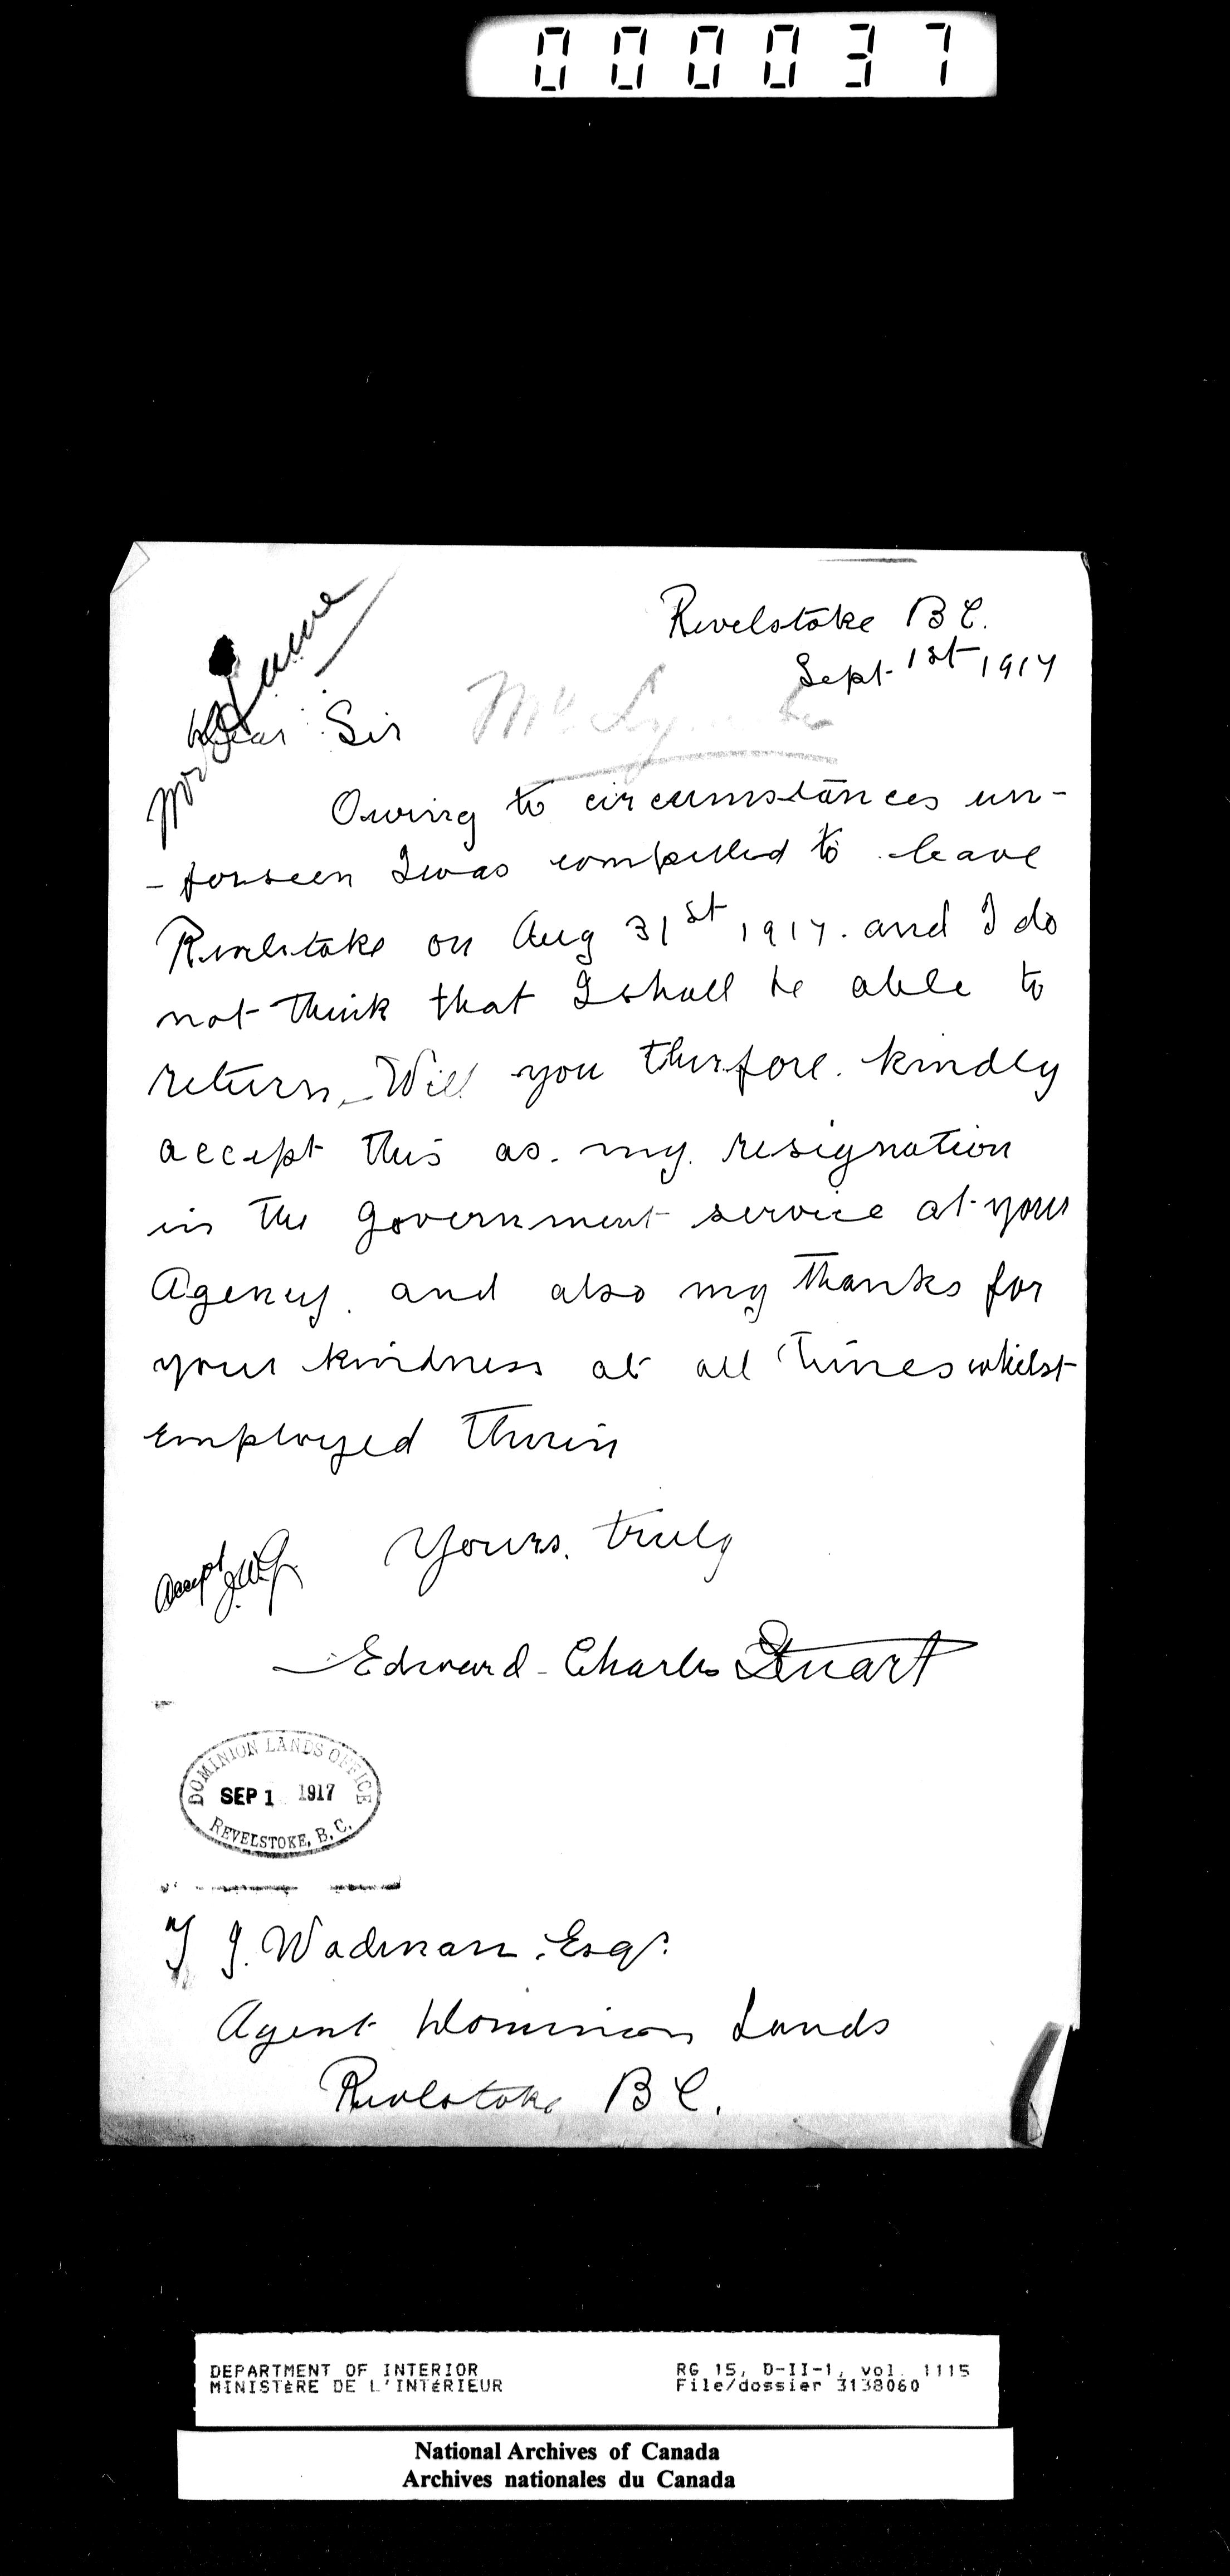 000037
Revelstoke B C.
Sept. 1st 1917
Dear Sir
Mr
Owing to circumstances un-
- forseen I was compelled to leave
Revelstoke on Aug 31st 1917. and I do
not think that I shall be able to
return. Will you therefore. kindly
accept this as. my. resignation
in the Government service at your
Agency. and also my thanks for
your kindness at all times whilst
employed therein
Yours. truly
Accept
Edward Charles Stuart
DOMINION LANDS OFFICE
SEP 1 1917
REVELSTOKE, B. C.
J. Wadman. Esqr.
Agent Dominion Lands
Revelstoke B C.
DEPARTMENT OF INTERIOR
MINISTÈRE DE L'INTÉRIEUR
RG 15, D-II-1, vol. 1115
File/dossier 3138060
National Archives of Canada
Archives nationales du Canada